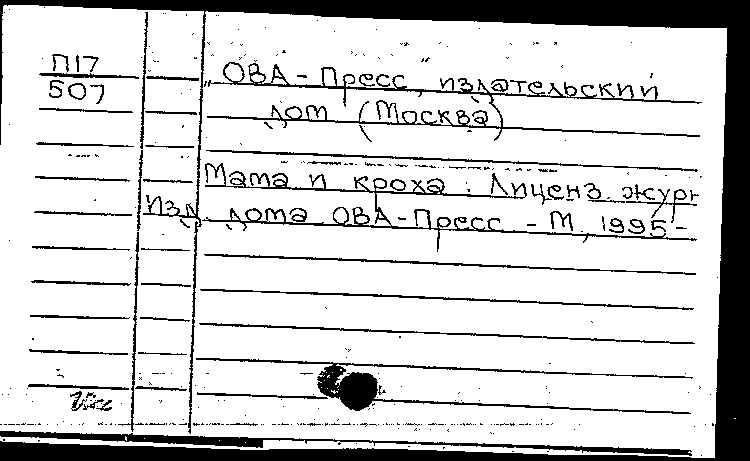 П17
507
„ОВА-Пресс, издательский
дом (Москва)
Мама и кроха: Лиценз. журн
изд. дома ОВА-Пресс. - М, 1995-